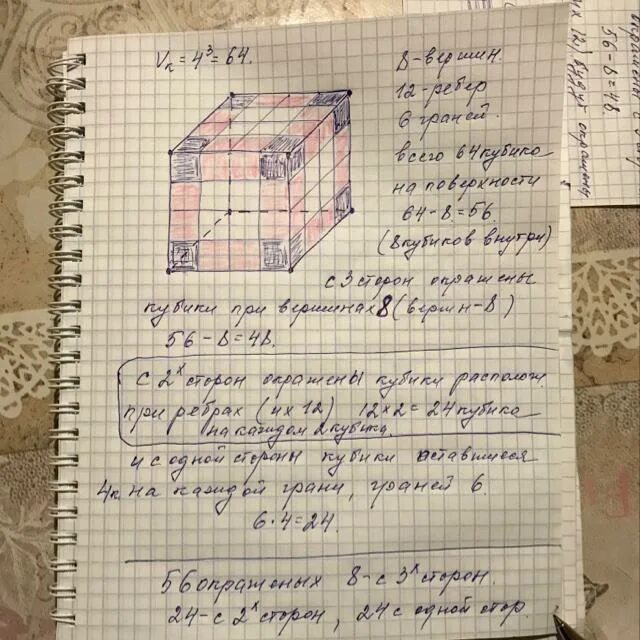 Vк = 4³ = 64.
8-вершин.
12-ребер
6 граней.
всего 64 кубика
на поверхности
64 - 8 = 56.
(8 кубиков внутри)
с 3 сторон окрашены
кубики при вершинах 8 (вершин-8)
56 - 8 = 48.
с 2ˣ сторон окрашены кубики располож.
при ребрах (их 12) 12×2 = 24 кубика
на каждом 2 кубика.
и с одной стороны кубики оставшиеся
4к на каждой грани, граней 6.
6·4 = 24.
56 окрашеных 8-с 3ˣ сторон.
24-с 2ˣ сторон, 24 с одной стор.
56 - 8 = 48.
их 12) будут окрашены